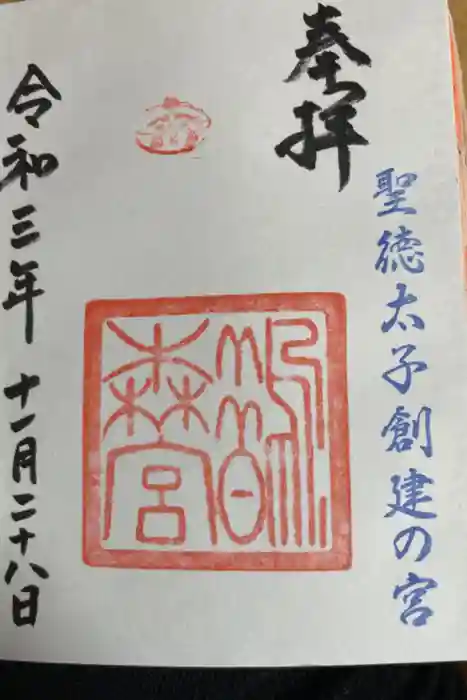 奉拝
聖徳太子創建の宮
鵲
森宮
令和三年十一月二十八日